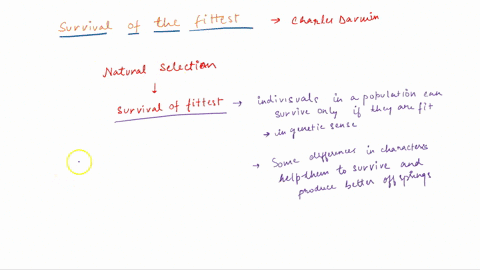 Survival of the fittest → Charles Darwin
Natural Selection
↓
Survival of fittest → indivisuals in a population can
survive only if they are fit
→ in genetic sense
→ Some differences in characters
help them to survive and
produce better offsprings